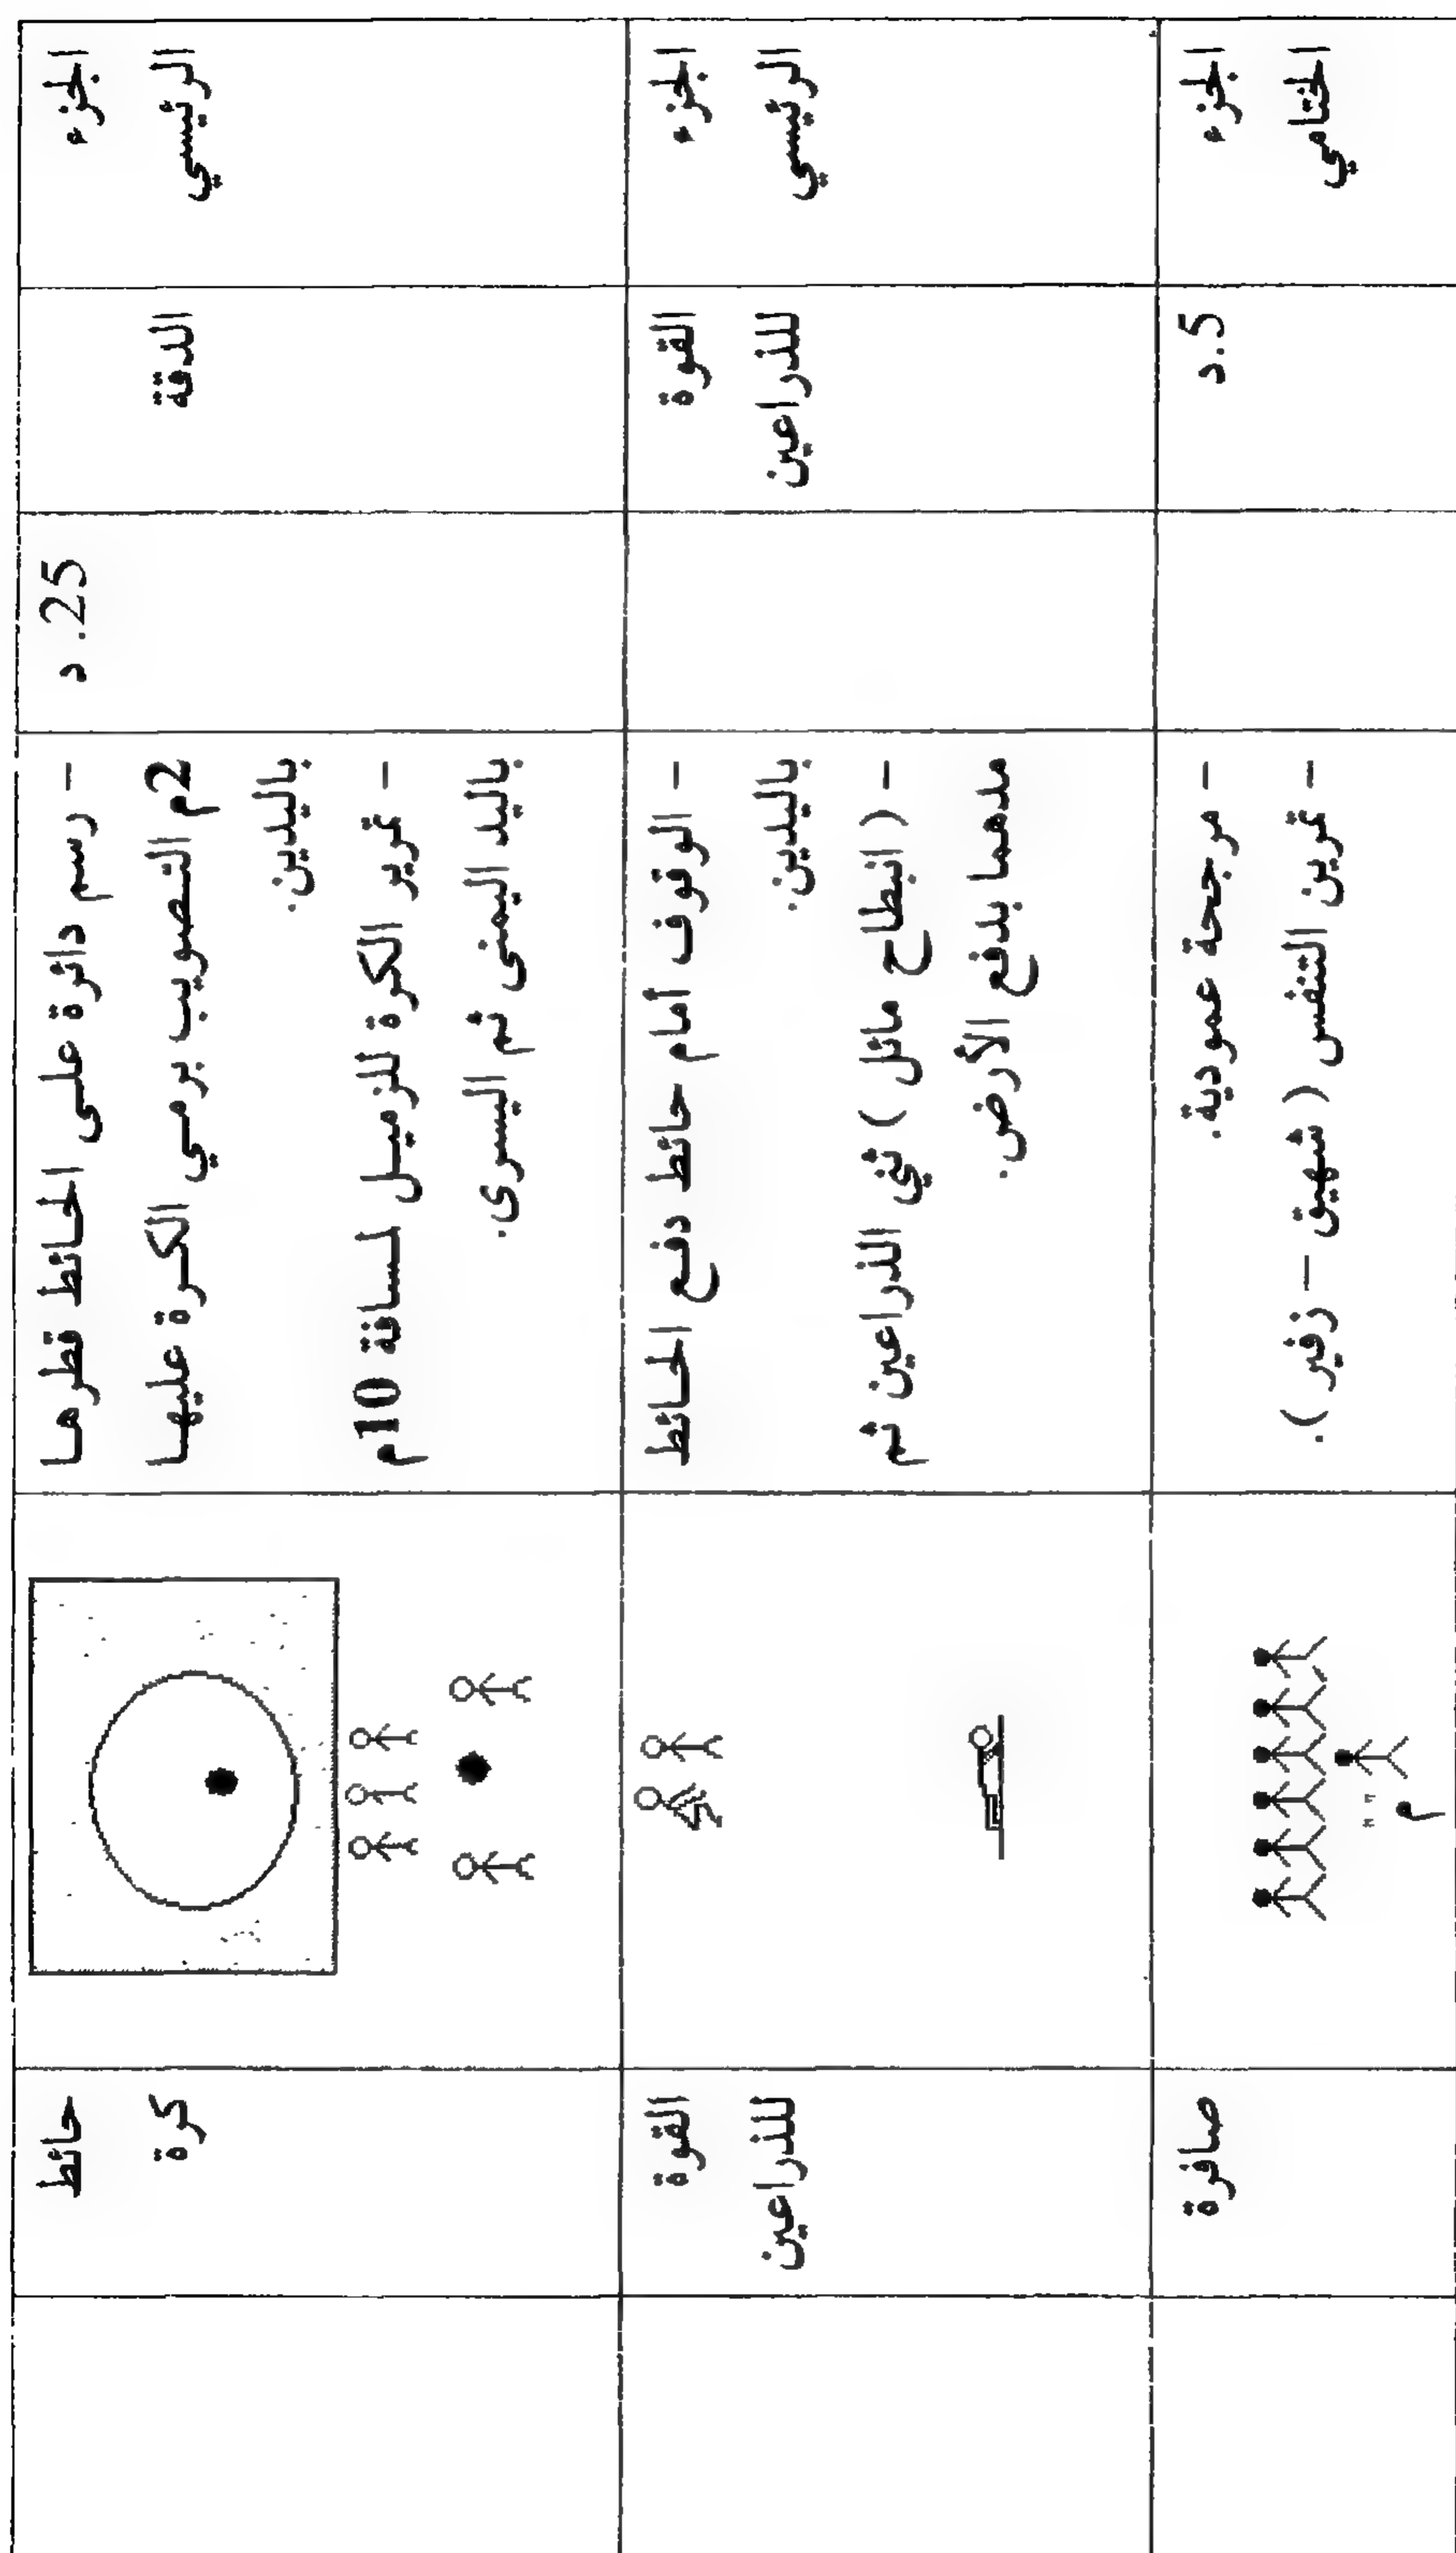 الجزء
الرئيسي
الدقة
25. د
- رسم دائرة على الحائط قطرها
2م التصويب برمي الكرة عليها
باليدين.
- تمرير الكرة للزميل لمسافة 10م
باليد اليمنى ثم اليسرى.
حائط
كرة
الجزء
الرئيسي
القوة
للذراعين
- الوقوف أمام حائط دفع الحائط
باليدين.
- ( انبطاح مائل ) ثني الذراعين ثم
مدهما بدفع الأرض.
القوة
للذراعين
الجزء
الختامي
5.د
- مرجحة عمودية.
- تمرين التنفس ( شهيق – زفير ).
م
صافرة